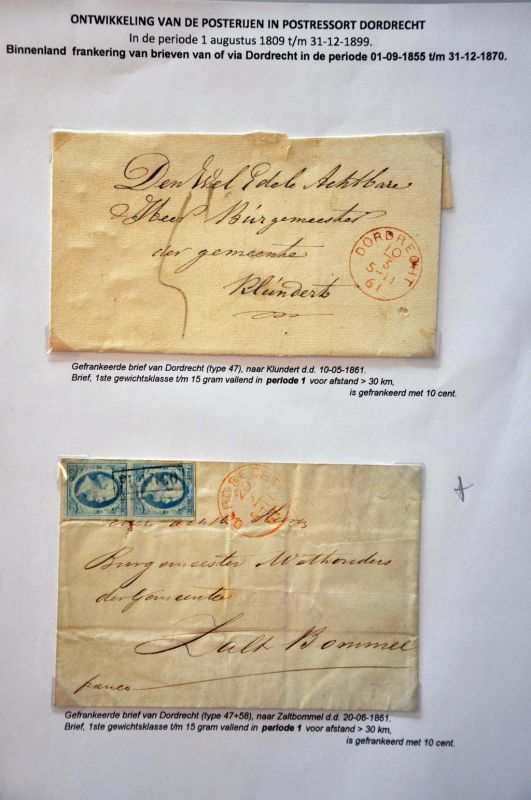 ONTWIKKELING VAN DE POSTERIJEN IN POSTRESSORT DORDRECHT
In de periode 1 augustus 1809 t/m 31-12-1899.
Binnenland frankering van brieven van of via Dordrecht in de periode 01-09-1855 t/m 31-12-1870.
Den Wel Edele Achtbare
Heer Burgemeester
der gemeente
Klundert
DORDRECHT
10
5
61
Gefrankeerde brief van Dordrecht (type 47), naar Klundert d.d. 10-05-1861.
Brief, 1ste gewichtsklasse t/m 15 gram vallend in periode 1 voor afstand > 30 km,
is gefrankeerd met 10 cent.
DORDRECHT
20
Burgemeester Wethouders
der Gemeente
Zalt Bommel
franco
Gefrankeerde brief van Dordrecht (type 47+58), naar Zaltbommel d.d. 20-06-1861.
Brief, 1ste gewichtsklasse t/m 15 gram vallend in periode 1 voor afstand > 30 km,
is gefrankeerd met 10 cent.